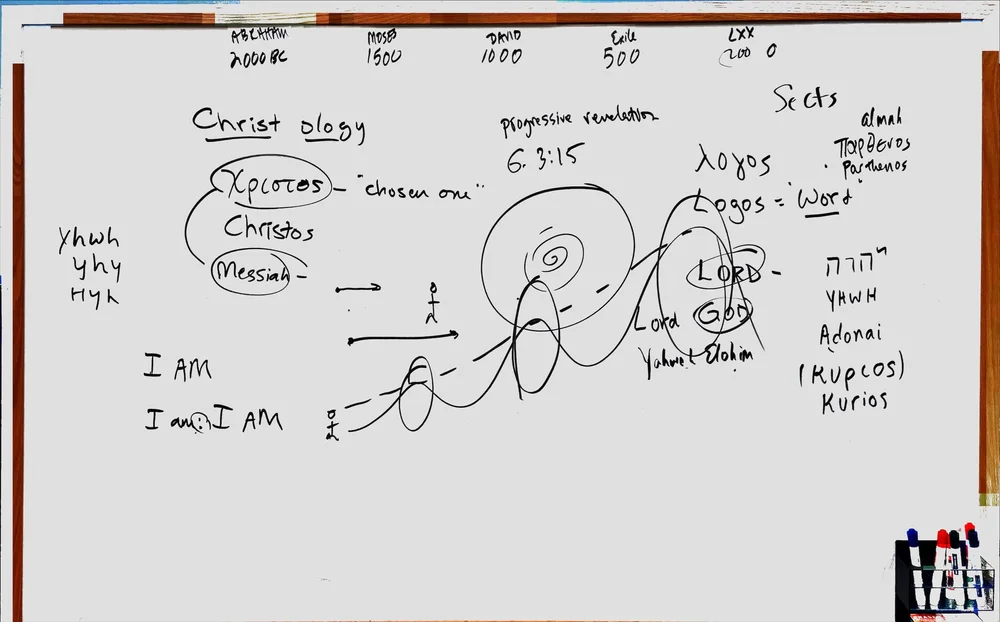 ABRAHAM MOSES DAVID Exile LXX
2000 BC 1500 1000 500 200 0
Sects
Christology
progressive revelation
G. 3:15
almah
παρθενος
parthenos
λογος
Logos = "Word"
Χριστος - "chosen one"
Christos
Messiah -
Yhwh
yhy
Hyh
LORD -
יהוה
YHWH
Lord GOD
Adonai
Yahweh Elohim
(Κυριος)
Kurios
I AM
I am : I AM